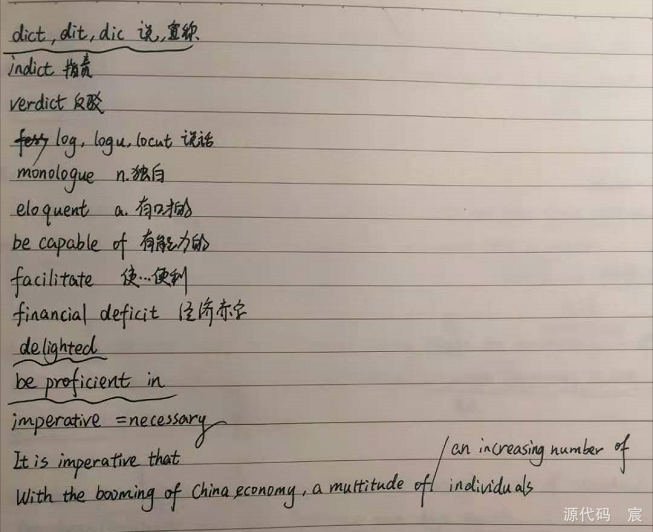 dict, dit, dic 说,宣称
indict 指责
verdict 反驳
log, logu, locut 说话
monologue n.独白
eloquent a. 有口才的
be capable of 有能力的
facilitate 使…便利
financial deficit 经济赤字
delighted
be proficient in
imperative =necessary
It is imperative that
With the booming of China economy, a multitude of / an increasing number of
individuals
源代码 宸